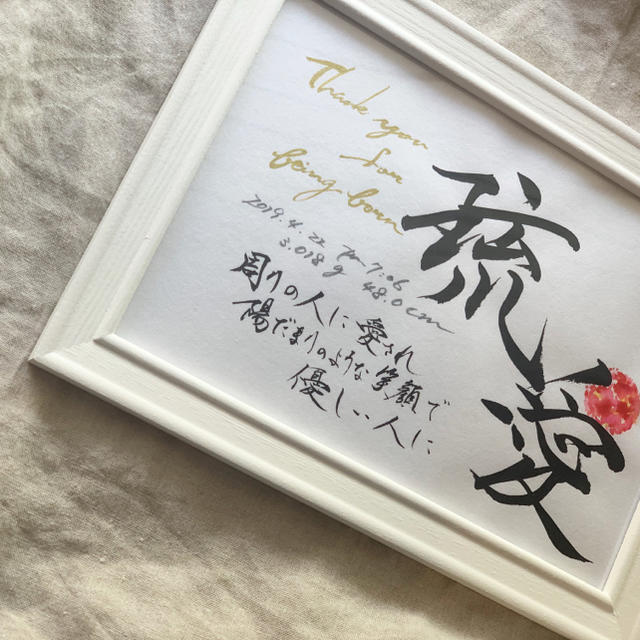 Thank you
for
being born
2019.4.22 pm7:06
3.018g 48.0cm
周りの人に愛され
陽だまりのような笑顔で
優しい人に
琉愛